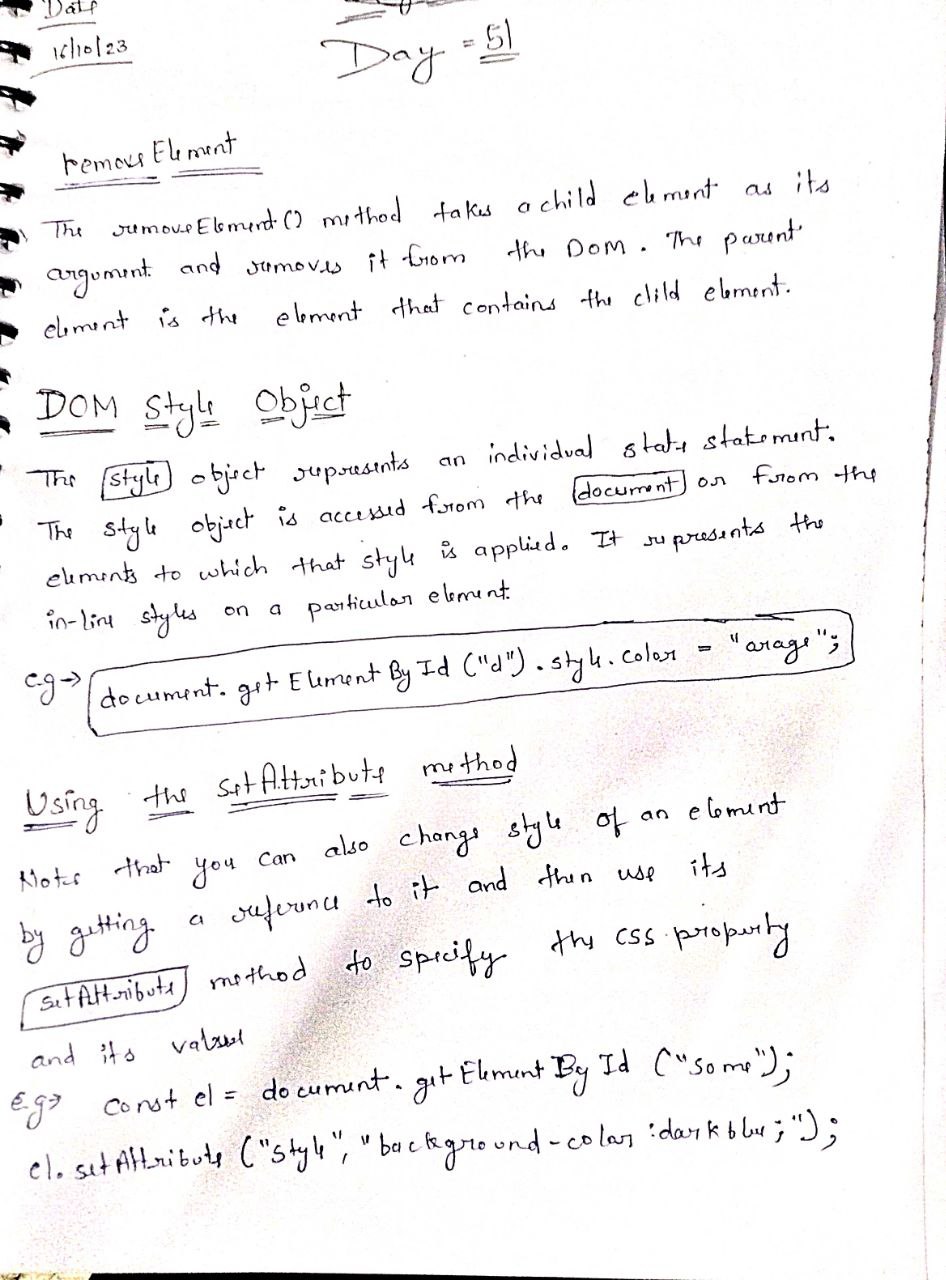 Date
16/10/23
Day = 51
remove Element
The removeElement() method takes a child element as its
argument and removes it from the DOM. The parent
element is the element that contains the clild element.
DOM Style Object
The style object represents an individual state statement.
The style object is accessed from the document or from the
elements to which that style is applied. It represents the
in-line styles on a particular element.
e.g → document.getElementById("d").style.color = "arage";
Using the setAttribute method
Note that you can also change style of an element
by getting a reference to it and then use its
setAttribute method to specify the CSS property
and its value
E.g → const el = document.getElementById("some");
el.setAttribute("style", "background-color:darkblue;");